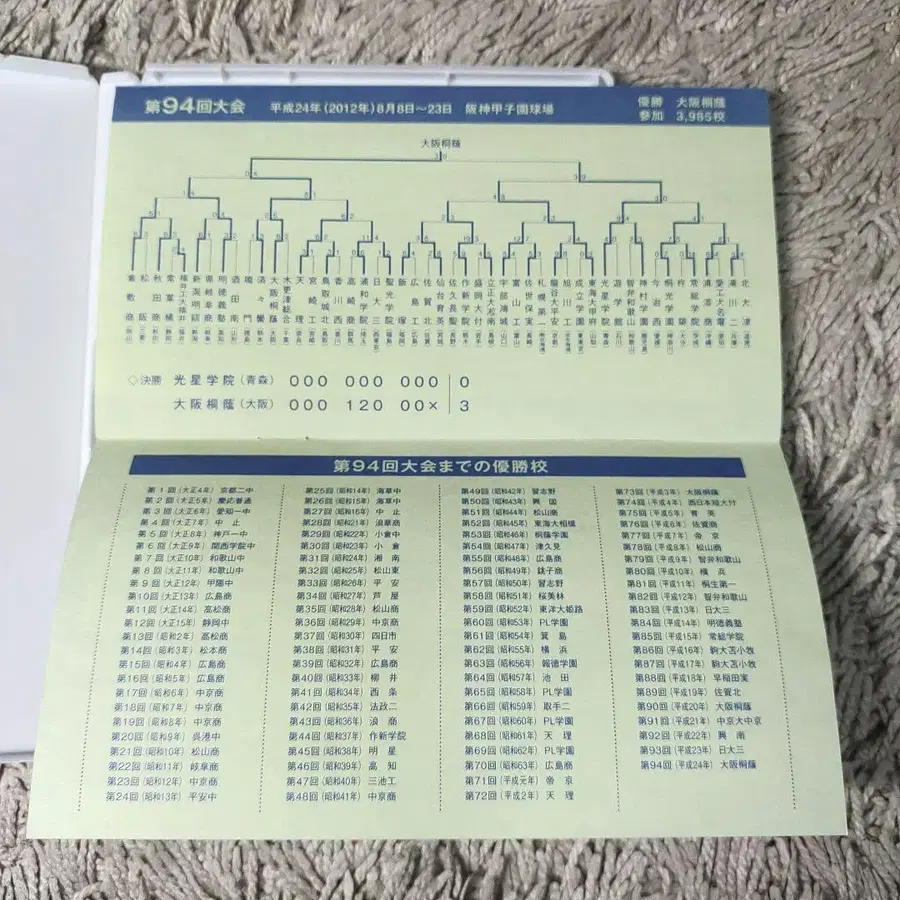 第94回大会 平成24年(2012年)8月8日～23日 阪神甲子園球場
優勝 大阪桐蔭
参加 3,985校
大阪桐蔭
倉敷商
松阪
秋田商
常葉橘
福井工大福井
新潟明訓
県岐阜商
明徳義塾
酒田南
鳴門
済々黌
大阪桐蔭
木更津総合
天理
宮崎工
鳥取城北
香川西
高崎商
浦和学院
日大三
聖光学院
飯塚
広島工
佐賀北
仙台育英
佐久長聖
作新学院
盛岡大付
立正大淞南
宇部鴻城
富山工
佐世保実
札幌第一
龍谷大平安
旭川工
成立学園
東海大甲府
光星学院
遊学館
智弁和歌山
神村学園
今治西
桐光学園
杵築
常総学院
浦添商
愛工大名電
滝川二
北大津
◇決勝 光星学院(青森) 000 000 000 0
大阪桐蔭(大阪) 000 120 00× 3
第94回大会までの優勝校
第1回(大正4年) 京都二中
第2回(大正5年) 慶応普通
第3回(大正6年) 愛知一中
第4回(大正7年) 中止
第5回(大正8年) 神戸一中
第6回(大正9年) 関西学院中
第7回(大正10年) 和歌山中
第8回(大正11年) 和歌山中
第9回(大正12年) 甲陽中
第10回(大正13年) 広島商
第11回(大正14年) 高松商
第12回(大正15年) 静岡中
第13回(昭和2年) 高松商
第14回(昭和3年) 松本商
第15回(昭和4年) 広島商
第16回(昭和5年) 広島商
第17回(昭和6年) 中京商
第18回(昭和7年) 中京商
第19回(昭和8年) 中京商
第20回(昭和9年) 呉港中
第21回(昭和10年) 松山商
第22回(昭和11年) 岐阜商
第23回(昭和12年) 中京商
第24回(昭和13年) 平安中
第25回(昭和14年) 海草中
第26回(昭和15年) 海草中
第27回(昭和16年) 中止
第28回(昭和21年) 浪華商
第29回(昭和22年) 小倉中
第30回(昭和23年) 小倉
第31回(昭和24年) 湘南
第32回(昭和25年) 松山東
第33回(昭和26年) 平安
第34回(昭和27年) 芦屋
第35回(昭和28年) 松山商
第36回(昭和29年) 中京商
第37回(昭和30年) 四日市
第38回(昭和31年) 平安
第39回(昭和32年) 広島商
第40回(昭和33年) 柳井
第41回(昭和34年) 西条
第42回(昭和35年) 法政二
第43回(昭和36年) 浪商
第44回(昭和37年) 作新学院
第45回(昭和38年) 明星
第46回(昭和39年) 高知
第47回(昭和40年) 三池工
第48回(昭和41年) 中京商
第49回(昭和42年) 習志野
第50回(昭和43年) 興国
第51回(昭和44年) 松山商
第52回(昭和45年) 東海大相模
第53回(昭和46年) 桐蔭学園
第54回(昭和47年) 津久見
第55回(昭和48年) 広島商
第56回(昭和49年) 銚子商
第57回(昭和50年) 習志野
第58回(昭和51年) 桜美林
第59回(昭和52年) 東洋大姫路
第60回(昭和53年) PL学園
第61回(昭和54年) 箕島
第62回(昭和55年) 横浜
第63回(昭和56年) 報徳学園
第64回(昭和57年) 池田
第65回(昭和58年) PL学園
第66回(昭和59年) 取手二
第67回(昭和60年) PL学園
第68回(昭和61年) 天理
第69回(昭和62年) PL学園
第70回(昭和63年) 広島商
第71回(平成元年) 帝京
第72回(平成2年) 天理
第73回(平成3年) 大阪桐蔭
第74回(平成4年) 西日本短大付
第75回(平成5年) 育英
第76回(平成6年) 佐賀商
第77回(平成7年) 帝京
第78回(平成8年) 松山商
第79回(平成9年) 智弁和歌山
第80回(平成10年) 横浜
第81回(平成11年) 桐生第一
第82回(平成12年) 智弁和歌山
第83回(平成13年) 日大三
第84回(平成14年) 明徳義塾
第85回(平成15年) 常総学院
第86回(平成16年) 駒大苫小牧
第87回(平成17年) 駒大苫小牧
第88回(平成18年) 早稲田実
第89回(平成19年) 佐賀北
第90回(平成20年) 大阪桐蔭
第91回(平成21年) 中京大中京
第92回(平成22年) 興南
第93回(平成23年) 日大三
第94回(平成24年) 大阪桐蔭